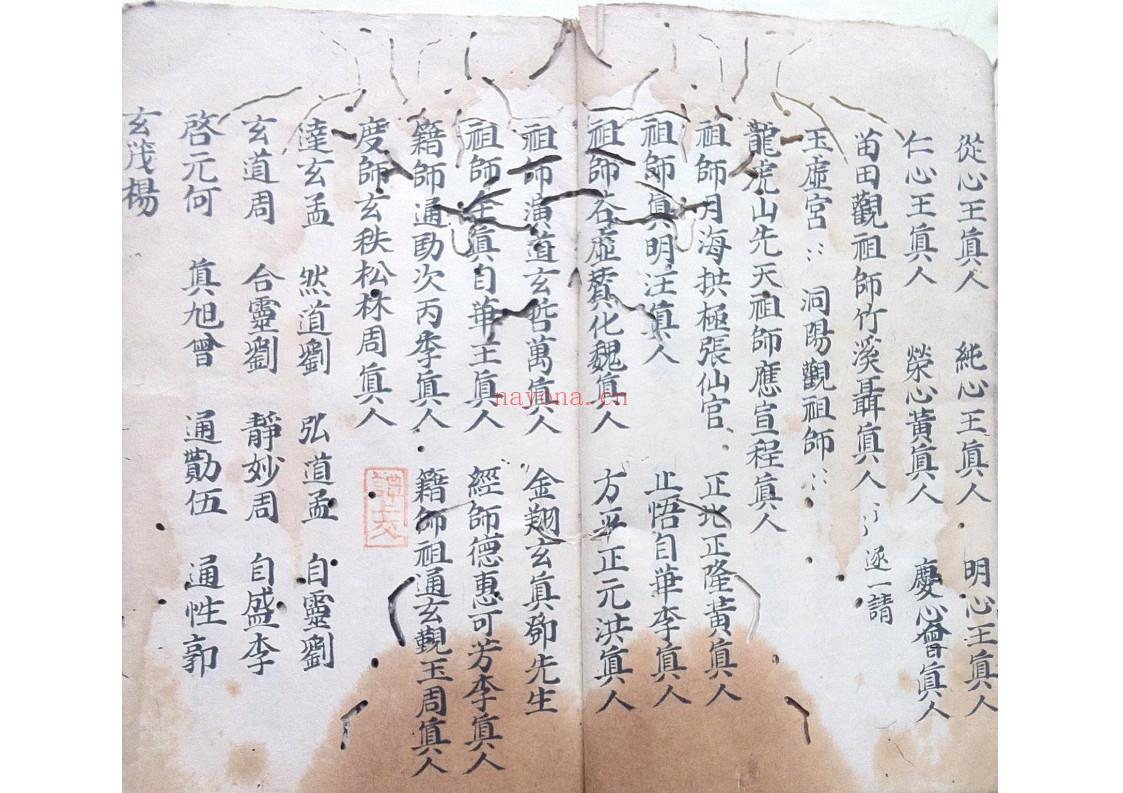 從心王真人 純心王真人 明心王真人
仁心王真人 榮心黃真人 慶心曾真人
苗田觀祖師竹溪聶真人 逐一請
玉虛宮 洞陽觀祖師
龍虎山先天祖師應宣程真人
祖師月海拱極張仙官 正北正隆黃真人
祖師真明汪真人 止悟自華李真人
祖師谷虛贊化魏真人 方平正元洪真人
祖師演道玄哲萬真人 金翔玄真鄧先生
祖師全真自華王真人 經師德惠可芳李真人
籍師通勛次丙季真人 籍師祖通玄觀玉周真人
度師玄秩松林周真人
達玄孟 然道劉 弘道孟 自靈劉
玄道周 合靈劉 靜妙周 自盛李
啓元何 真旭曾 通勤伍 通性郭
玄茂楊
nayona.cn